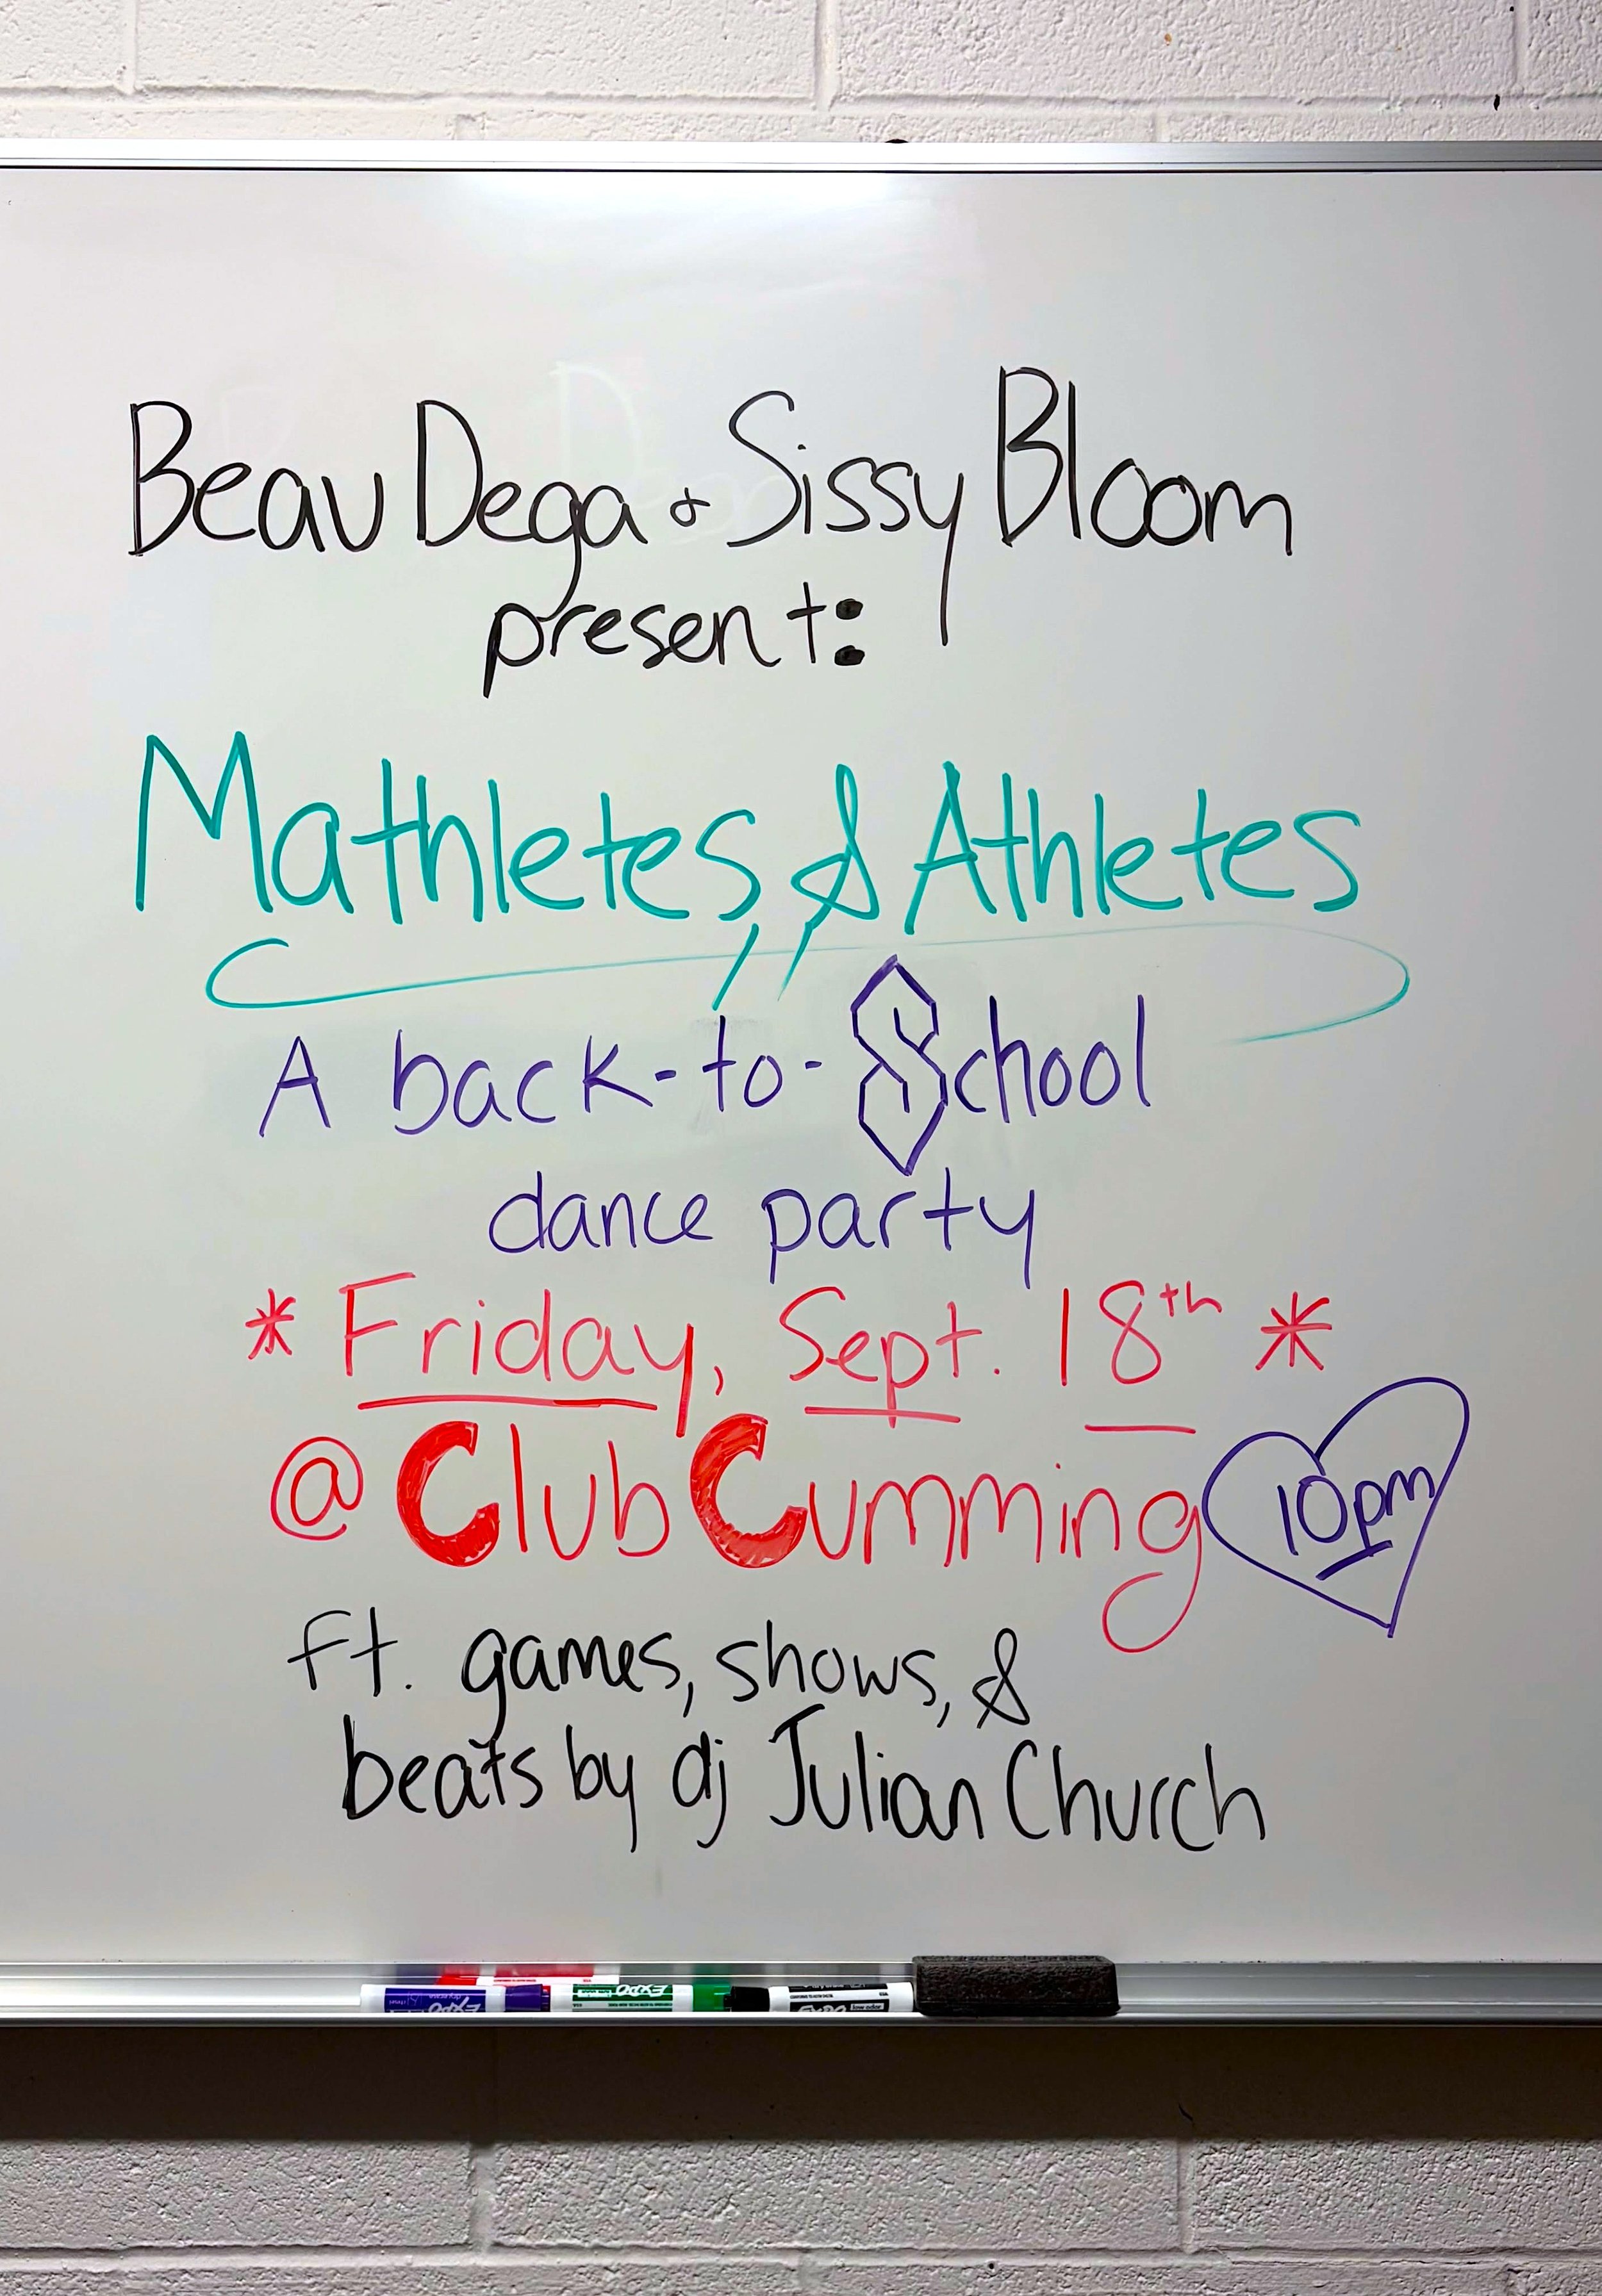 Beau Dega & Sissy Bloom
present:
Mathletes & Athletes
A back-to-School
dance party
* Friday, Sept. 18th *
@ Club Cumming
10pm
ft. games, shows, &
beats by dj Julian Church
EXPO
EXPO
EXPO low odor